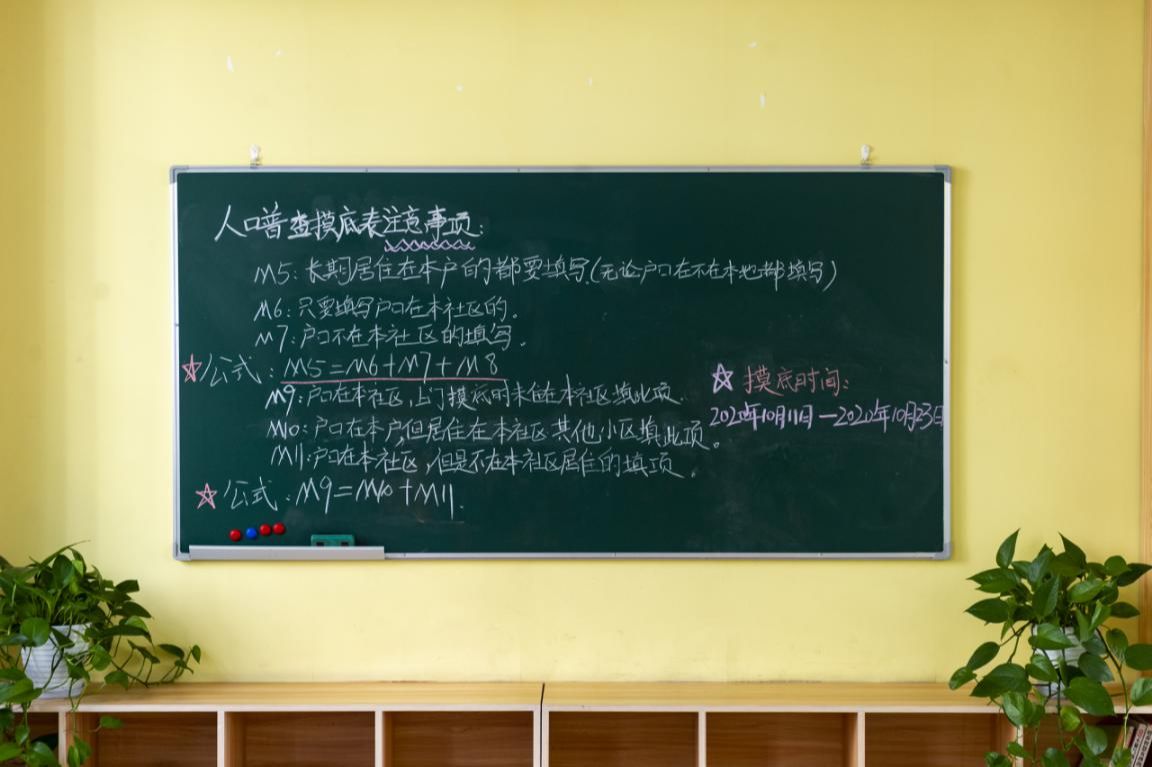 人口普查摸底表注意事项:
M5:长期居住在本户的都要填写.(无论户口在不在本地都填写)
M6:只要填写户口在本社区的。
M7:户口不在本社区的填写.
☆公式:M5=M6+M7+M8
M9:户口在本社区,上门摸底时未住在本社区填此项.
M10:户口在本户,但居住在本社区其他小区填此项。
M11:户口在本社区,但是不在本社区居住的填项.
☆公式:M9=M10+M11.
☆摸底时间:
2020年10月11日—2020年10月23日